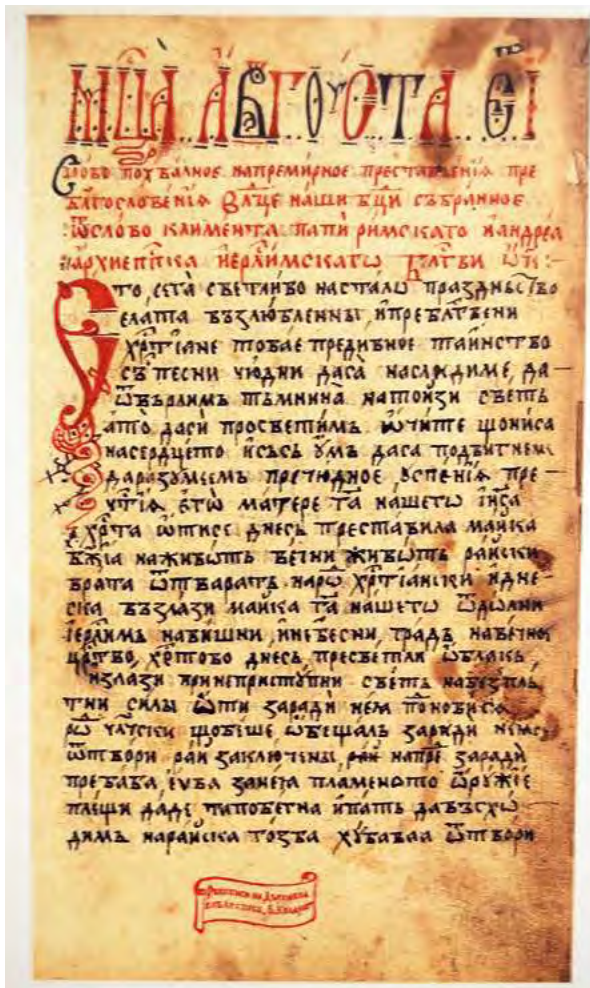 МЦ҃А АВГОУСТА ЕІ
Слово похвалное напремирное преставленїѧ пре
благословенїѧ Влⷣце наши бц҃и събранное
ѿслово климента папи римскаго и андреа
архиепⷭ҇пка иерⷭ҇лимскагѡ
що, сега светливо насталѡ празднⷭ҇тво
елата възлюбленны, и преблⷭ҇твени
хрⷭ҇тїане товае предивное таинство
съ песни чюдни даса насладиме, да
ѿвърлимъ тъмнина натойзи светъ
ато даси просветимъ ѡчите щониса
насердцето исъсъ ѹмъ даса подвигнемъ
даразумеемъ пречюдное успенїѧ пре
чⷭ҇тїѧ егѡ матере га нашегѡ іиса
хрⷭ҇та днесь преставила майка
бж҃їа наживотъ вечни животъ райски
врата ѿтваратъ народ хрⷭ҇тїански и дне
ска възлази майка га нашегѡ ѿдолни
іерлⷭ҇имъ навишни, инебесни, градъ навечно
црⷭ҇тво, хрⷭ҇тово днесь, пресветли ѡблакъ
излази принеприступни светъ
тни силы заради нея
щобеше ѡбещалъ заради нея
ѿтвори рай заключены, рай напре заради
пребаба, евва занеѧ пламеното ѡружїе
плещи даде патъ давъсхѡ
димъ нарайска хубавая ѿтвори